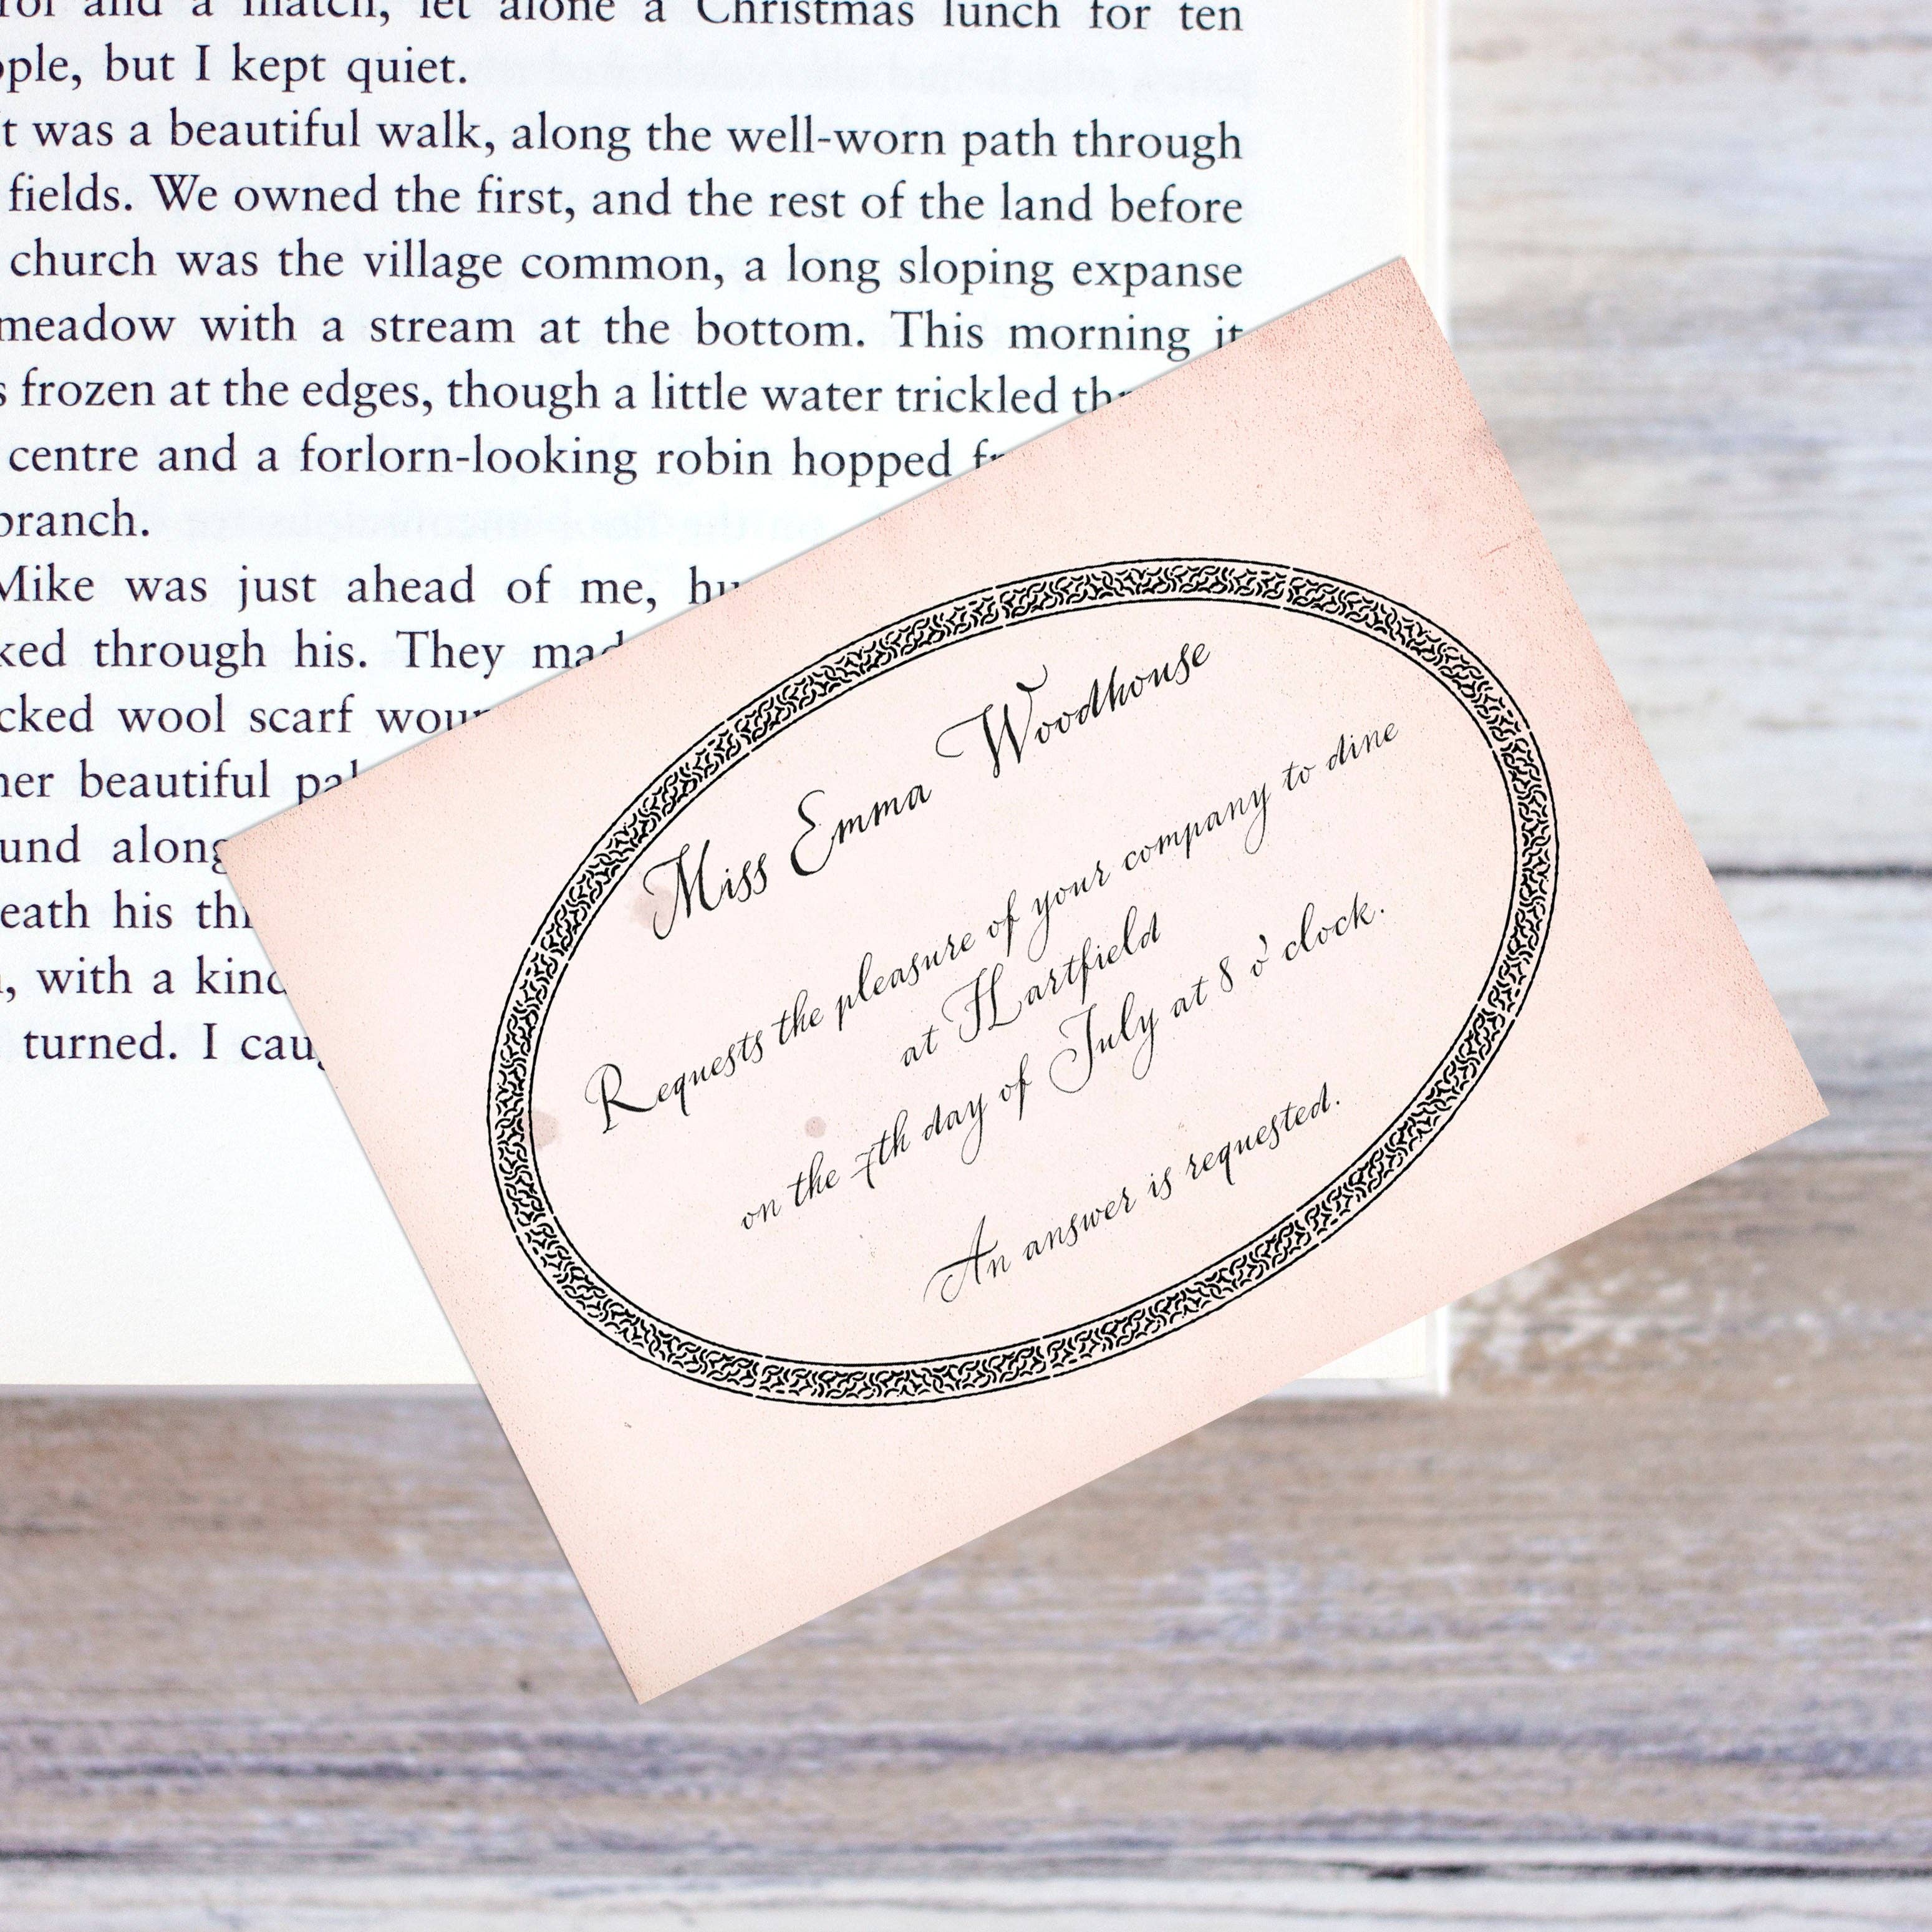 and a match, let alone a Christmas lunch for ten
ople, but I kept quiet.
t was a beautiful walk, along the well-worn path through
fields. We owned the first, and the rest of the land before
church was the village common, a long sloping expanse
meadow with a stream at the bottom. This morning it
s frozen at the edges, though a little water trickled
centre and a forlorn-looking robin hopped
branch.
Mike was just ahead of me,
ked through his. They
cked wool scarf
her beautiful
und along
eath his
, with a kind
turned. I
Miss Emma Woodhouse
Requests the pleasure of your company to dine
at Hartfield
on the 7th day of July at 8 o' clock.
An answer is requested.